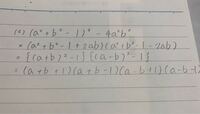 (a²+b²-1)² - 4a²b²
= (a²+b²-1+2ab)(a²+b²-1-2ab)
= {(a+b)²-1}{(a-b)²-1}
= (a+b+1)(a+b-1)(a-b+1)(a-b-1)